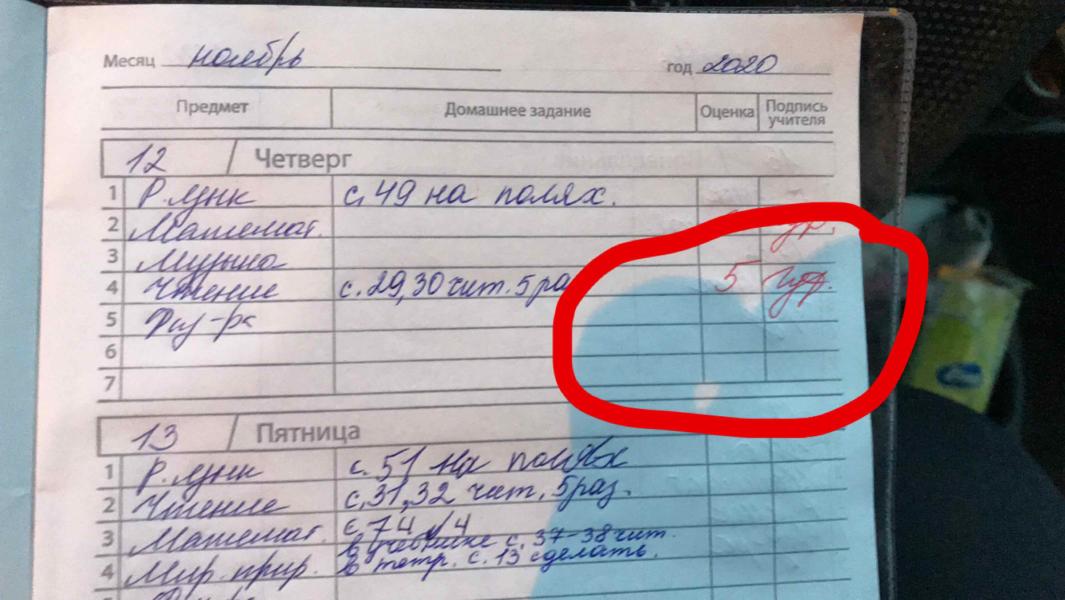 Месяц ноябрь год 2020
Предмет Домашнее задание Оценка Подпись учителя
12 Четверг
1 Р. язык с. 49 на полях.
2 Математ.
3 Музыка
4 Чтение с. 29, 30 чит. 5 раз 5
5 Физ-ра
6
7
13 Пятница
1 Р. язык с. 51 на полях
2 Чтение с. 31, 32 чит. 5 раз.
3 Математ. с. 74 №4
в учебнике с. 37-38 чит.
4 Мир. прир. В тетр. с. 13 сделать.